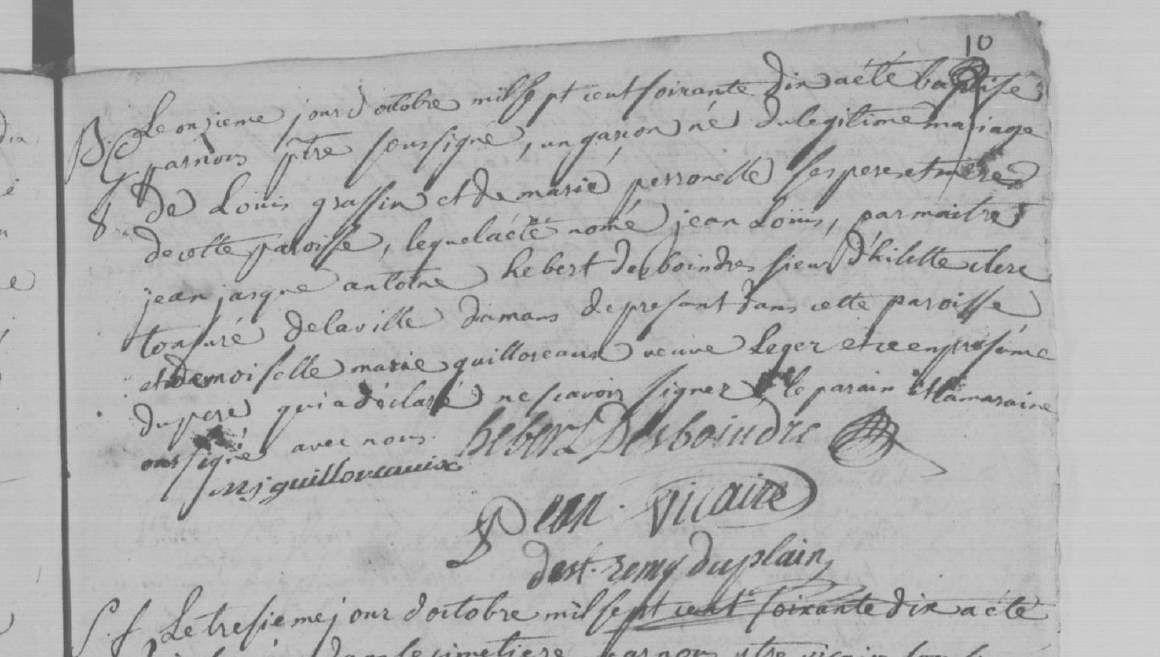 10
B. G. Le onzieme jour d'octobre mil sept cent soixante dix a été baptisé
par nous ptre soussigné, un garçon né du legitime mariage
8. de Loüis grassin et de marie perronelle ses pere et mere
de cette paroisse, lequel a été nomé jean Loüis, par maitre
jean jasque antoine hebert desboindres sieur d'hilette clerc
tonsuré de la ville du mans de present dans cette paroisse
et demoiselle marie guilloreaux veuve Leger et ce en présence
du pere qui a déclaré ne scavoir signer le parain et la maraine
ont signé avec nous
hebert Desboindre
M guilloreauix
vicaire
de st. remy du plain
S. f. Le tresieme jour d'octobre mil sept cent soixante dix a été
dans le cimetiere par nous ptre vicaire